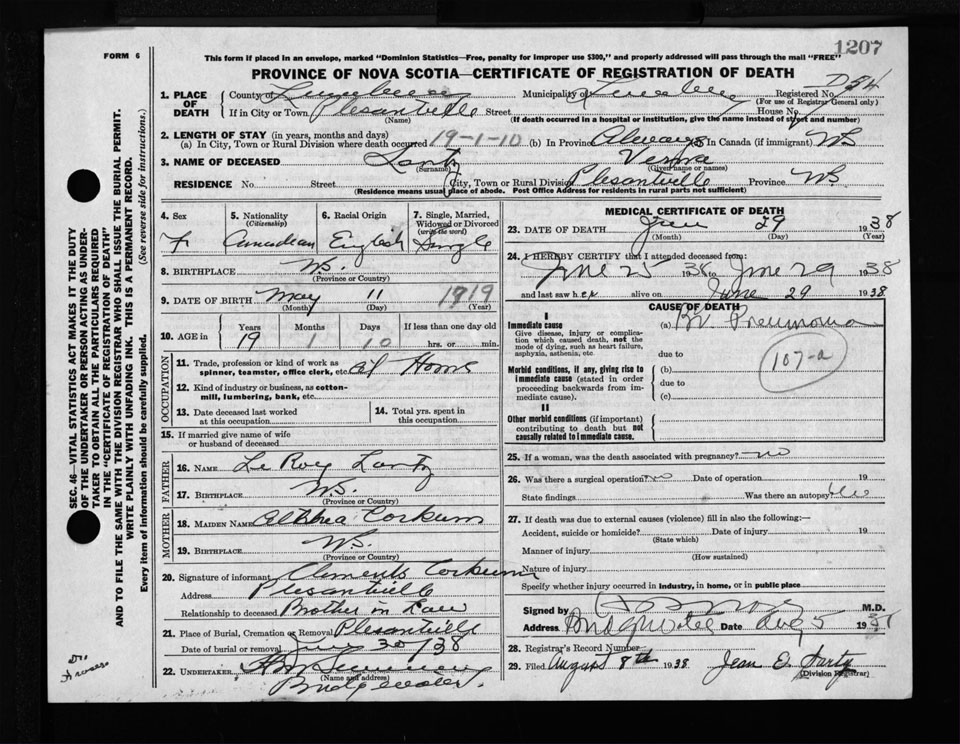 1207
FORM 6
This form if placed in an envelope, marked "Dominion Statistics—Free, penalty for improper use $300," and properly addressed will pass through the mail "FREE"
PROVINCE OF NOVA SCOTIA—CERTIFICATE OF REGISTRATION OF DEATH
SEC. 46—VITAL STATISTICS ACT MAKES IT THE DUTY
OF THE UNDERTAKER OR PERSON ACTING AS UNDER-
TAKER TO OBTAIN ALL THE PARTICULARS REQUIRED
IN THE "CERTIFICATE OF REGISTRATION OF DEATH"
AND TO FILE THE SAME WITH THE DIVISION REGISTRAR WHO SHALL ISSUE THE BURIAL PERMIT.
WRITE PLAINLY WITH UNFADING INK. THIS IS A PERMANENT RECORD.
Every item of information should be carefully supplied. (See reverse side for instructions.)
1. PLACE OF DEATH
County of Lunenburg Municipality of Lunenburg Registered No.
(For use of Registrar General only)
If in City or Town Plesantville Street House No.
(Name) (If death occurred in a hospital or institution, give the name instead of street and number)
2. LENGTH OF STAY (in years, months and days)
(a) In City, Town or Rural Division where death occurred 19-1-10 (b) In Province Always (c) In Canada (if immigrant) NS
3. NAME OF DECEASED Lantz Verna
(Surname) (Given name or names)
RESIDENCE No. Street City, Town or Rural Division Plesantville Province NS.
(Residence means usual place of abode. Post Office Address for residents in rural parts not sufficient)
4. Sex F
5. Nationality (Citizenship) Canadian
6. Racial Origin English
7. Single, Married, Widowed or Divorced (write the word) Single
8. BIRTHPLACE NS.
(Province or Country)
9. DATE OF BIRTH May 11 1919
(Month) (Day) (Year)
10. AGE in Years Months Days If less than one day old
19 1 10 hrs. or min.
OCCUPATION
11. Trade, profession or kind of work as spinner, teamster, office clerk, etc. at Home
12. Kind of industry or business, as cotton-mill, lumbering, bank, etc.
13. Date deceased last worked at this occupation
14. Total yrs. spent in this occupation
15. If married give name of wife or husband of deceased
FATHER
16. NAME Le Roy Lantz
17. BIRTHPLACE NS.
(Province or Country)
MOTHER
18. MAIDEN NAME Corkum
19. BIRTHPLACE NS.
(Province or Country)
20. Signature of informant Clements Corkum
Address Plesantville
Relationship to deceased Brother in Law
21. Place of Burial, Cremation or Removal Plesantville
Date of burial or removal 30/38
22. UNDERTAKER
(Name and address)
Bridgewater.
MEDICAL CERTIFICATE OF DEATH
23. DATE OF DEATH June 29 1938
(Month) (Day) (Year)
24. I HEREBY CERTIFY that I attended deceased from:
June 25 1938 to June 29 1938
and last saw her alive on June 29 1938
CAUSE OF DEATH
I
Immediate cause
Give disease, injury or complication which caused death, not the mode of dying, such as heart failure, asphyxia, asthenia, etc.
(a) Br. Pneumonia
due to
107-a
Morbid conditions, if any, giving rise to immediate cause (stated in order proceeding backwards from immediate cause).
(b)
due to
(c)
II
Other morbid conditions (if important) contributing to death but not causally related to immediate cause.
25. If a woman, was the death associated with pregnancy? no
26. Was there a surgical operation? no Date of operation 19
State findings Was there an autopsy?
27. If death was due to external causes (violence) fill in also the following:—
Accident, suicide or homicide? Date of injury 19
(State which)
Manner of injury
(How sustained)
Nature of injury
Specify whether injury occurred in industry, in home, or in public place
Signed by M.D.
Address Bridgewater Date Aug 5 193
28. Registrar's Record Number
29. Filed August 8th 1938 Jean E.
(Division Registrar)